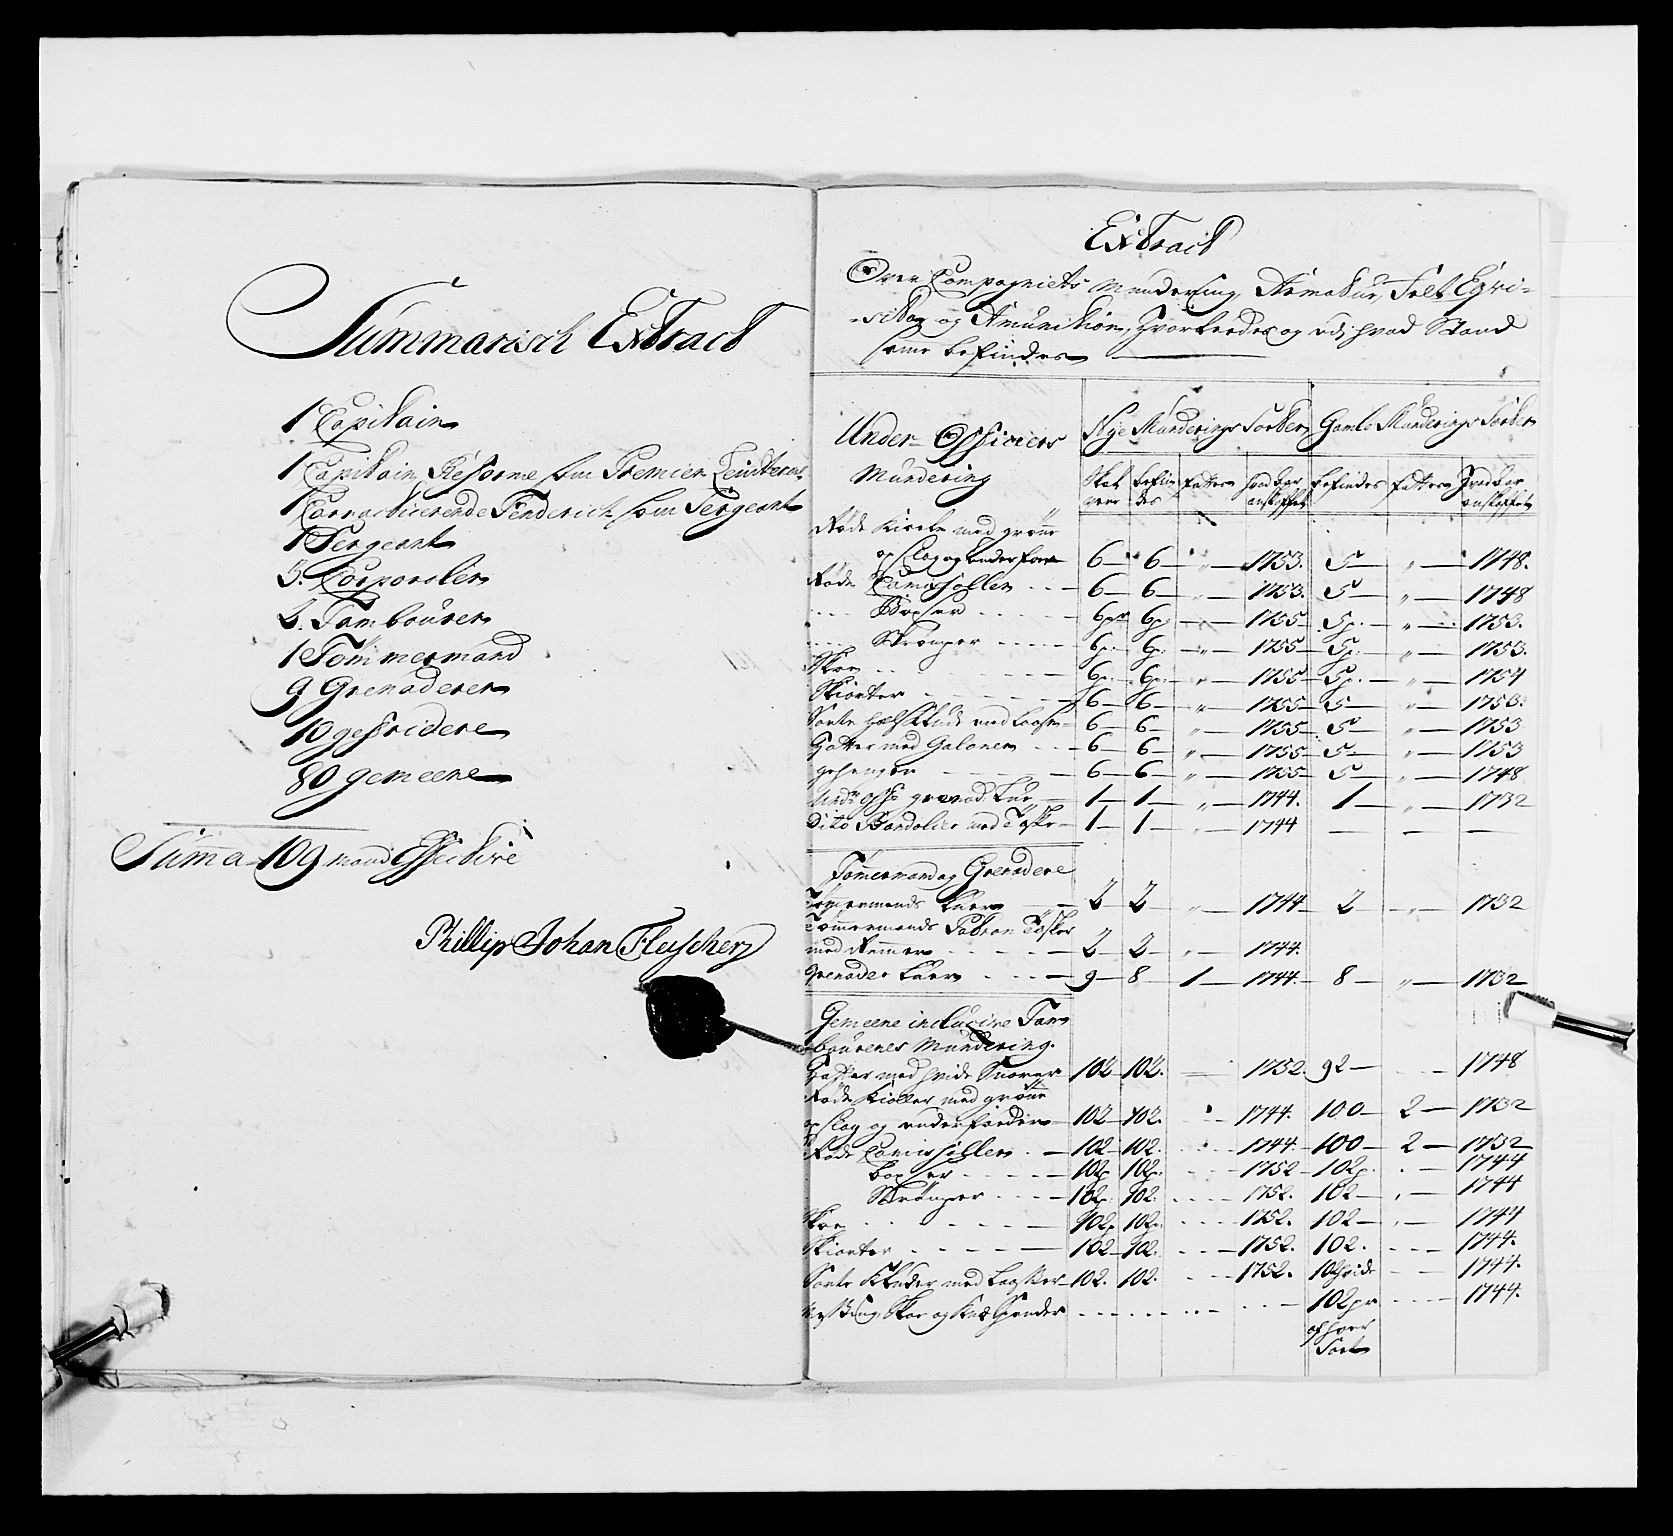 Summarisch Extract
1 Capitain
1 Capitain Reforme som Premier Leiutenant
1 Carracterisende Fenderich som Sergeant
1 Sergeant
3. Corporaler
2. Tambourer
1 Tømmermand
9 Grenaderer
10 gefridere
80 gemeene
Summa 109 mand Effective
Phillip Johan Fleischer
Extract
Over Compagniets Mundering, Armatur, Felt Eqvi-
-page og Amunition, hvor og udi hvad Stand
samme befindes
Under Officiers Mundering | Nye Munderings Sorter | Gamle Munderings Sorter
Skal være | befindes | fattes | hvad Aar anskaffet | befindes | fattes | hvad Aar anskaffet
Røde Kioele med grønne
opslag og underfoer 6 6 " 1753. 5 " 1748.
Røde Camisoller 6 6 " 1753. 5 " 1748
Boxser 6pr 6p " 1755 5p. " 1753.
Strømper 6p. 6p. " 1755 5p. " 1753.
Skoe 6p. 6p. " 1755 5p. " 1754
Skiorter 6 6 " 1755 5 " 1753.
Sorte Halsklude med 6 6 " 1755 5 " 1753
Hatter med Galoner 6 6 " 1755 5 " 1753
gehenger 6 6 " 1755 5 " 1748
Undr offs grenad: Luer 1 1 " 1744. 1 " 1732
Dito Bandolier med Taske 1 1 " 1744 — — —
Tømermand og Grenadere
Tømermands Luer 2 2 " 1744 2 " 1732
Tømmermands Patron Tasker
med Remmer 2 2 " 1744.
Grenader Luer 9 8 1 1744. 8 " 1732
Gemeene inclusive Tam
bourenes Mundering.
Hatter med hvide Snorer 102 102. 1752. 92 1748
Røde Kioler med grønne
opslag og underfoeder 102 102. 1744. 100 2 1732
Røde Camisoller 102 102. 1744. 100 2 1732
boxser 102p 102p. 1752 102p. 1744
Strømper 102p. 102. 1752. 102 1744
Skoe 102p 102. 1752. 102 1744
Skiorter 102 102. 1752. 102. 1744.
Sorte Kluder med 102. 102. 1752. 102 hvide 1744.
Messing Skoe og Knæ Spender 102pr 1744.
af hver
Sort